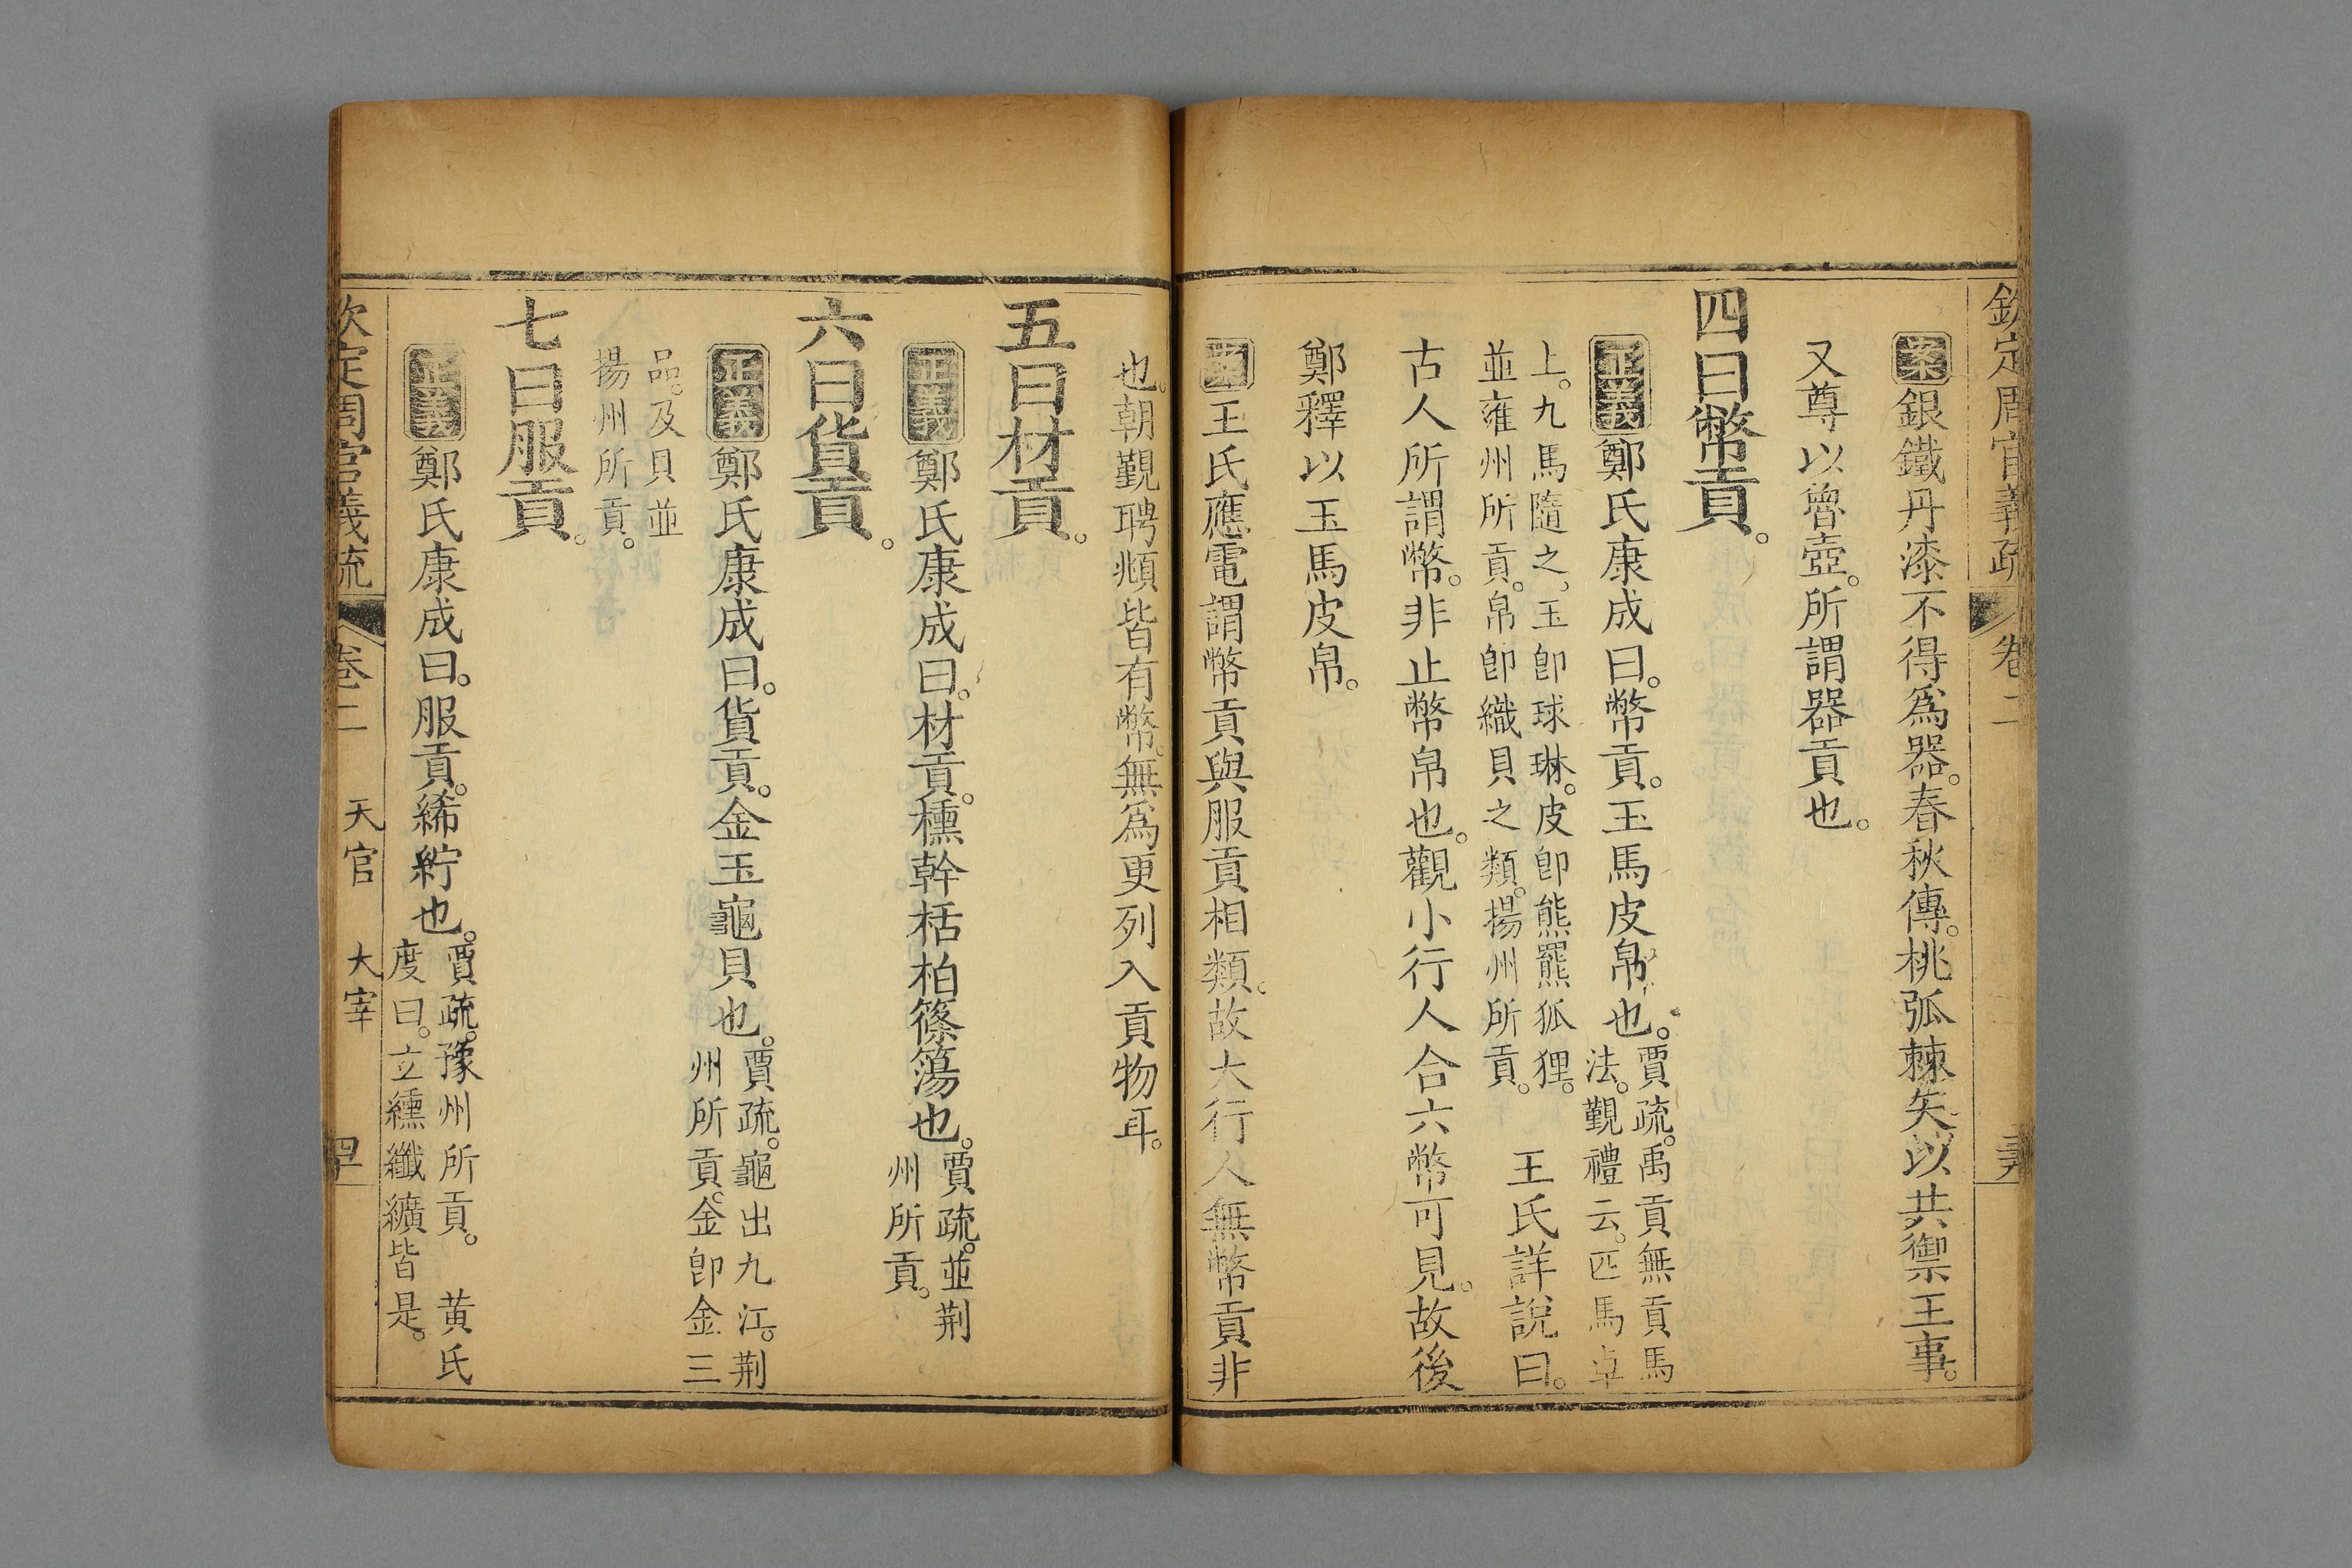 欽定周官義疏 卷二
案銀鐵丹漆不得爲器。春秋傳。桃弧棘矢。以共禦王事。
又尊以魯壺。所謂器貢也。
四曰幣貢。
正義鄭氏康成曰。幣貢。玉馬皮帛也。賈疏。禹貢無貢馬
法。覲禮云。匹馬卓
上。九馬隨之。玉卽球琳。皮卽熊羆狐狸。
並雍州所貢。帛卽織貝之類。揚州所貢。
王氏詳說曰。
古人所謂幣。非止幣帛也。觀小行人合六幣可見。故後
鄭釋以玉馬皮帛。
案王氏應電謂幣貢與服貢相類。故大行人無幣貢非
也。朝覲聘頫皆有幣。無爲更列入貢物耳。
五曰材貢。
正義鄭氏康成曰。材貢。櫄幹栝柏篠簜也。賈疏。並荆
州所貢。
六曰貨貢。
正義鄭氏康成曰。貨貢。金玉龜貝也。賈疏。龜出九江。荆
州所貢。金卽金三
品。及貝並
揚州所貢。
七曰服貢。
正義鄭氏康成曰。服貢。絺紵也。賈疏。豫州所貢。 黄氏
度曰。立纁纖纊皆是。
欽定周官義疏 卷二 天官 大宰